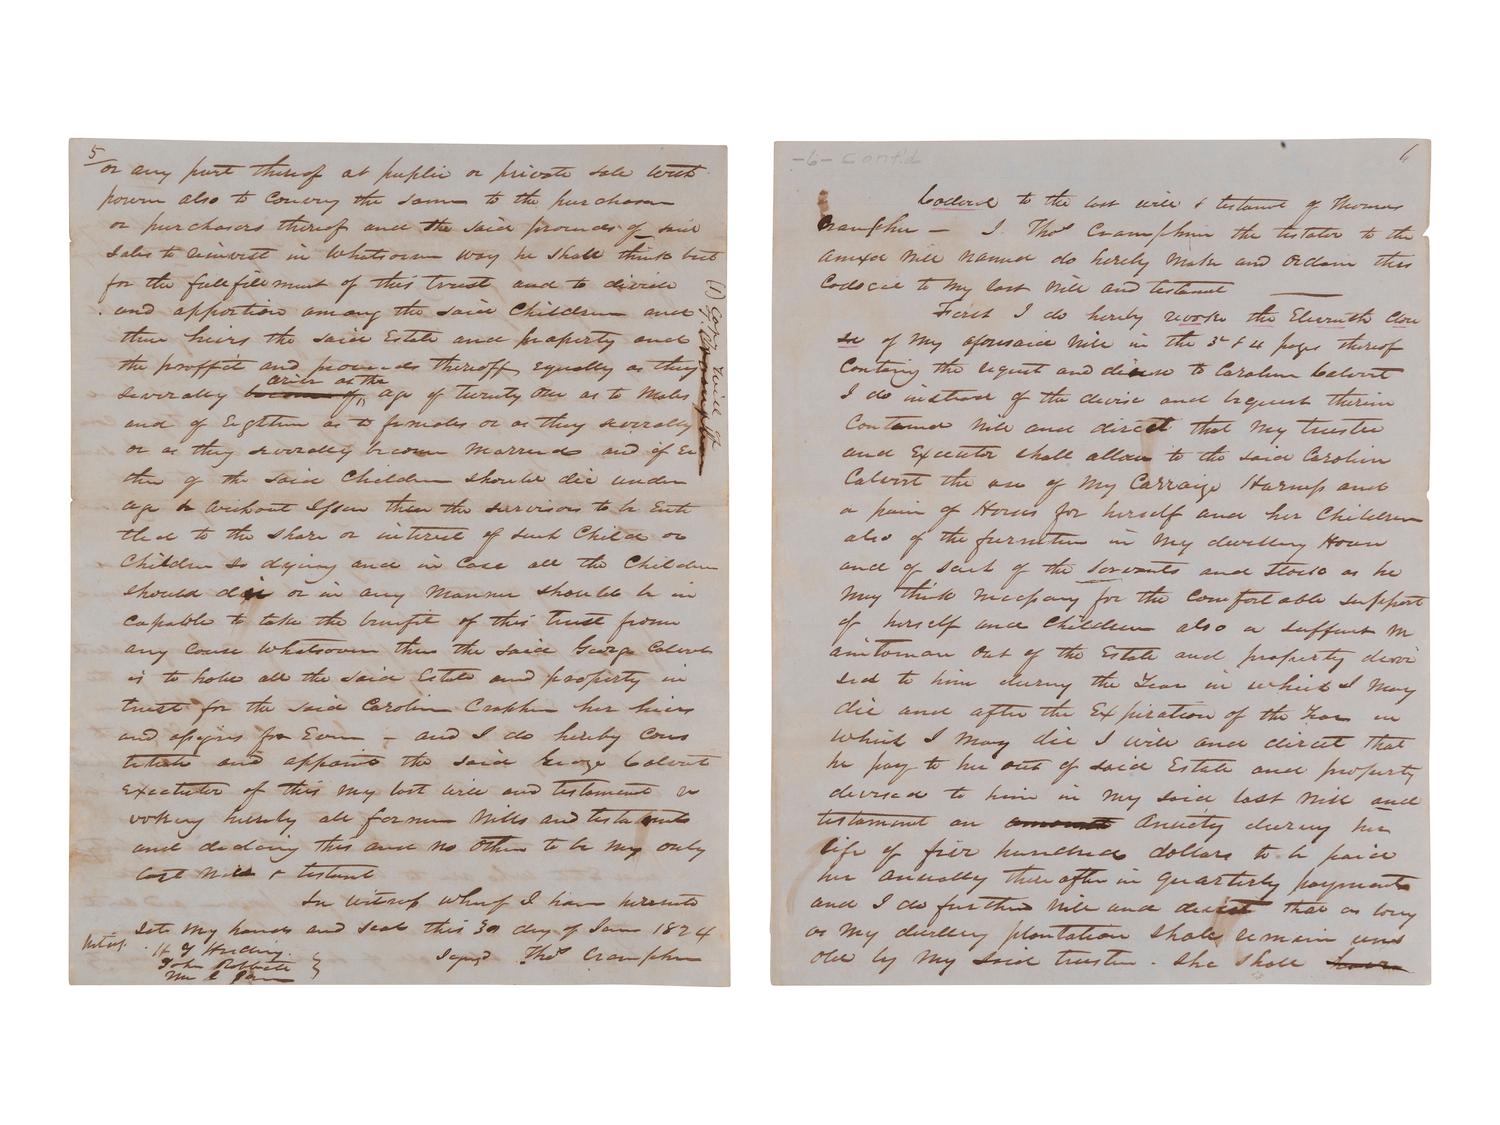 5
or any part thereof at puplic or private sale with
power also to convey the same to the purchaser
or purchasers thereof and the said proceeds of said
sales to reinvest in whatsoever way he shall think best
for the fullfillment of this trust and to divide
and apportion among the said Children and
their heirs the said Estate and property and
the proffits and proceeds thereoff equally as they
arive at the
severally become of age of twenty one as to Males
and of Eighteen as to females or as they severally
or as they severally become Married and if Ei
ther of the said Children should die under
age & without Issue then the survivors to be Enti
tled to the share or interest of such Child or
Children so dying and in Case all the Children
should die or in any Manner should be in
capable to take the benefit of this trust from
any Cause whatsoever then the said George Calvert
is to hold all the said Estate and property in
trust for the said Caroline her heirs
and assigns for Ever - and I do hereby Cons
titute and appoint the said George Calvert
Executor of this my last will and testament re
voking hereby all former Wills and testaments
and declaring this and no Other to be my only
last Will & testament
In witness whereof I have hereunto
Set my hand and seal this 30 day of June 1824
Signd Thos Cramphin
John
(1) Copy Will of
Cramphin
-6- Cont'd
6
Codocil to the last will & testament of Thomas
Cramphin - I Thos Cramphin the testator to the
anexed Will named do hereby Make and Ordain this
Codocil to My last Will and testament
First I do hereby revoke the Eleventh Clau
se of My aforesaid Will in the 3d & 4 pages thereof
Containg the bequest and devise to Caroline Calvert
I do instead of the devise and bequest therein
Contained Will and direct that My trustee
and Executor shall allow to the said Caroline
Calvert the use of My Carraige Harness and
a pair of Horses for herself and her Children
also of the furniture in My dwelling House
and of such of the Servants and Stock as he
May think necessary for the Comfortable support
of herself and Children also a suffient M
aintenance out of the Estate and property devi
sed to him during the Year in which I May
die and after the Expiration of the Year in
which I May die I will and direct that
he pay to her out of said Estate and property
devised to him in My said last Will and
testament an Anuity during her
life of five hundred dollars to be paid
her anually thereafter in quarterly payments
and I do further Will and direct that as long
as My dwelling plantation shall remain uns
old by My said trustee. She Shall have